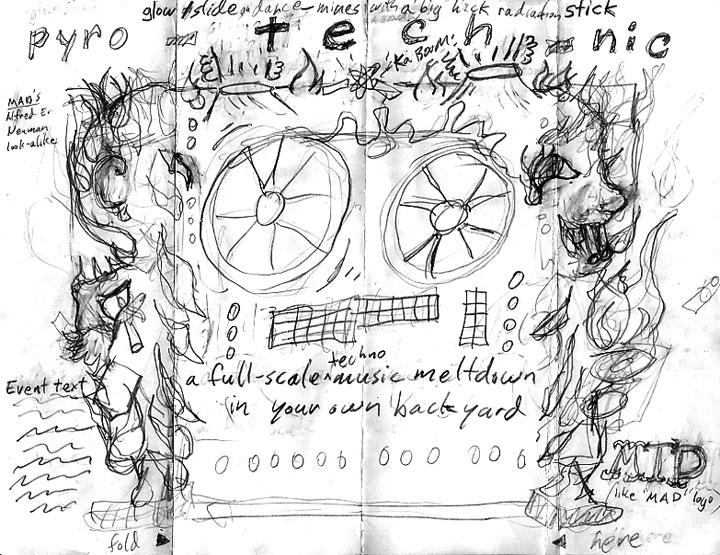 glow/slide/dance-mines with a big hick radiation stick
pyro-technic
Ka Boom!
MAD's
Alfred E.
Neuman
look-alike
techno
a full-scale music meltdown
in your own backyard
Event text
MTD
like "MAD" logo
fold here